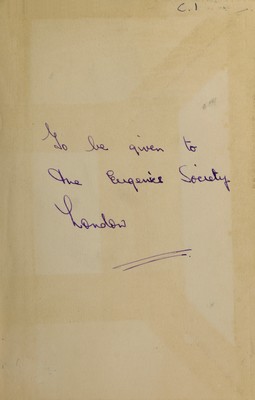 C.1
To be given to
the Eugenics Society
London